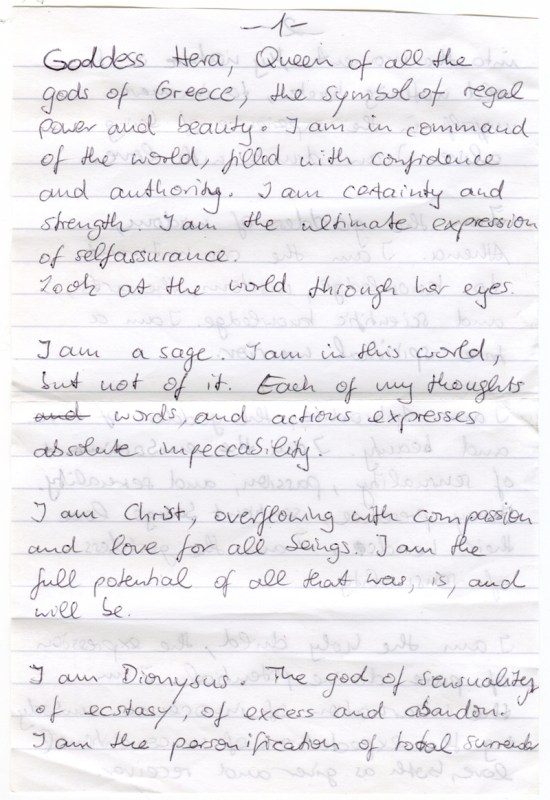 -1-
Goddess Hera, Queen of all the
gods of Greece, the symbol of regal
power and beauty. I am in command
of the world, filled with confidence
and authority. I am certainty and
strength I am the ultimate expression
of selfassurance.
Look at the world through her eyes.
I am a sage. I am in this world,
but not of it. Each of my thoughts
and words, and actions expresses
absolute impeccability.
I am Christ, overflowing with compassion
and love for all beings. I am the
full potential of all that was, is, and
will be.
I am Dionysus The god of sensuality
of ecstasy, of excess and abandon.
I am the personification of total surrender